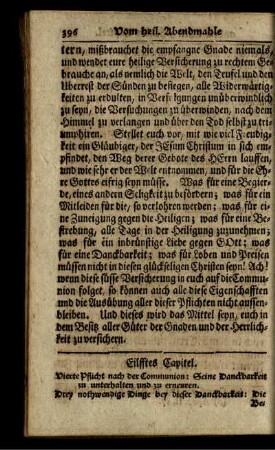 396 Vom heil. Abendmahle
tern, mißbrauchet die empfangne Gnade niemals,
und wendet eure heilige Versicherung zu rechtem Ge-
brauche an, als nemlich die Welt, den Teufel und den
Uberrest der Sünden zu besiegen, alle Widerwärtig-
keiten zu erdulten, in Verfolgungen unüberwindlich
zu seyn, die Versuchungen zu überwinden, nach dem
Himmel zu verlangen und über den Tod selbst zu tri-
umphiren. Stellet euch vor, mit wie viel Freudig-
keit ein Gläubiger, der JEsum Christum in sich em-
pfindet, den Weg derer Gebote des HErrn lauffen,
und wie sehr er der Welt entnommen, und für die Eh-
re Gottes eifrig seyn müsse. Was für eine Begier-
de, eines andern Seligkeit zu befördern; was für ein
Mitleiden für die, so verlohren werden; was für ei-
ne Zuneigung gegen die Heiligen; was für eine Be-
strebung, alle Tage in der Heiligung zuzunehmen;
was für ein inbrünstige Liebe gegen GOtt; was
für eine Danckbarkeit; was für Loben und Preisen
müssen nicht in diesen glückseligen Christen seyn! Ach!
wenn diese süsse Versicherung in euch auf die Commu-
nion folget, so können auch alle diese Eigenschafften
und die Ausübung aller dieser Pflichten nicht aussen-
bleiben. Und dieses wird das Mittel seyn, euch in
dem Besitz aller Güter der Gnaden und der Herrlich-
keit zu versichern.
Eilfftes Capitel.
Vierte Pflicht nach der Communion: Seine Danckbarkeit
zu unterhalten und zu erneuren.
Drey nothwendige Dinge bey dieser Danckbarkeit: Die
Be-